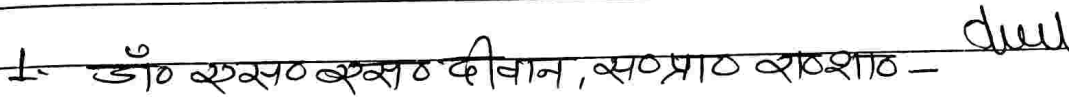 1. डॉ० एस० एस० दीवान, स०प्रा० रा०शा० –